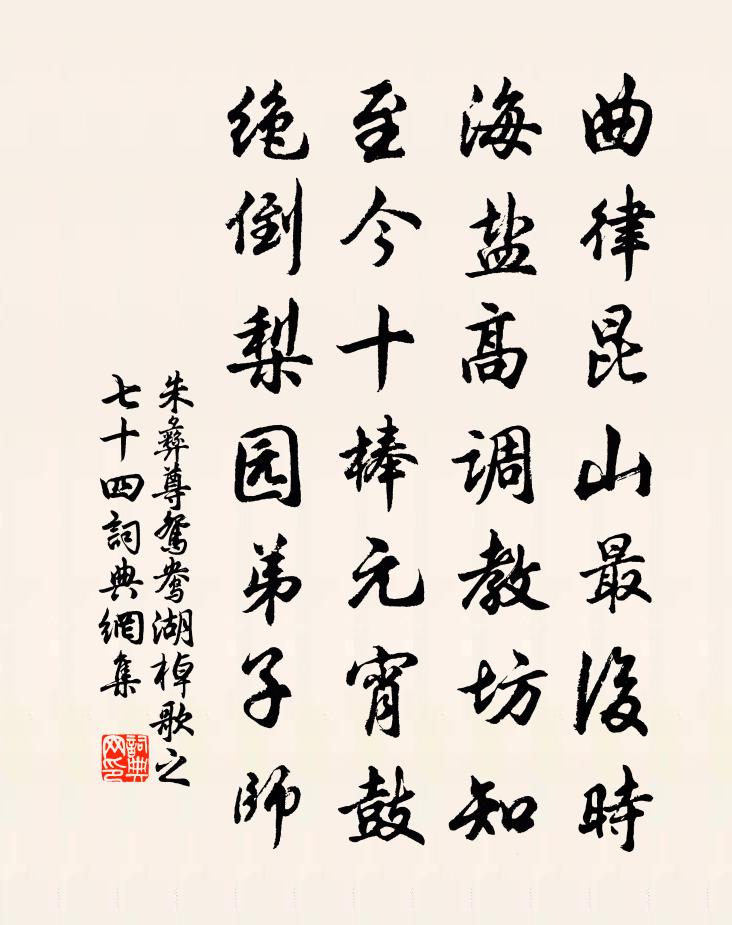 曲律昆山最後時
海盐高调教坊知
至今十棒元宵鼓
绝倒梨园弟子师
朱彝尊鴛鴦湖棹歌之
七十四詞典網集
詞典網印